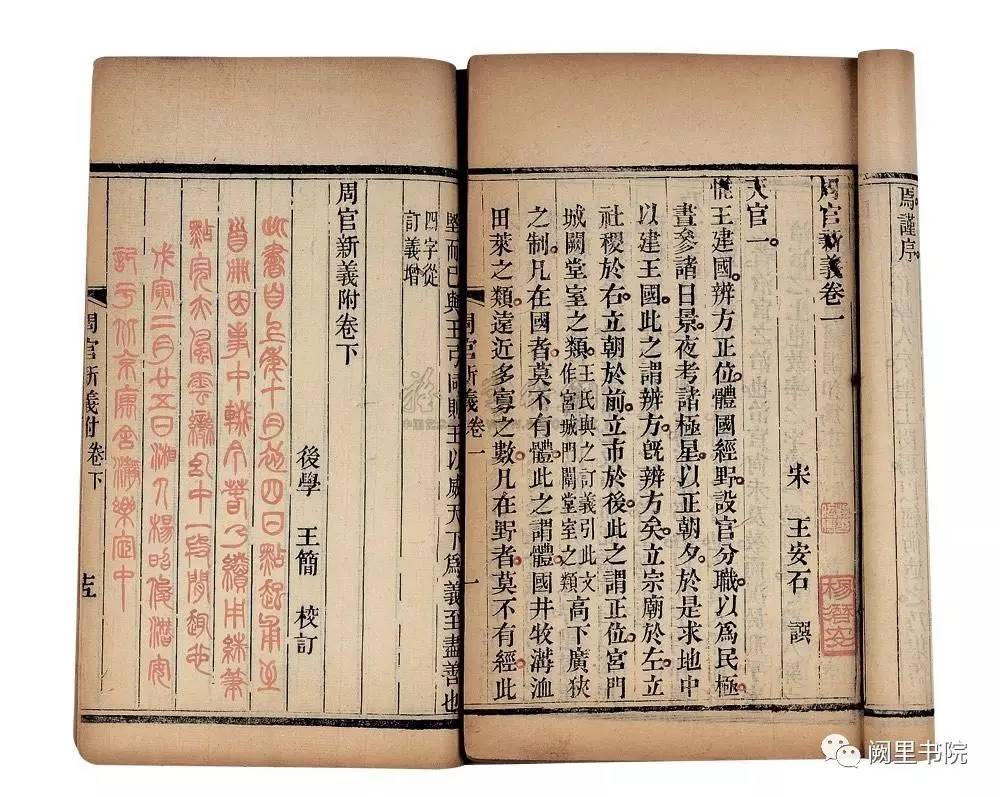 焉謹序
周官新義卷一
宋 王安石 譔
天官一
惟王建國辨方正位體國經野設官分職以爲民極
晝參諸日景夜考諸極星以正朝夕於是求地中
以建王國此之謂辨方旣辨方矣立宗廟於左立
社稷於右立朝於前立市於後此之謂正位宮門
城闕堂室之類王氏與之訂義引此文作宮城門闕堂室之類高下廣狹
之制凡在國者莫不有體此之謂體國井牧溝洫
田萊之類遠近多寡之數凡在野者莫不有經此
周官新義 卷一 一
堅而已與王弓同賜王以威天下爲義至盡善也
四字從
訂義增
周官新義附卷下
後學 王簡 校訂
此書自上年十月廿四日點起甫至
首冊因事中輟今春乃續用硃筆
點完亦風雲中一段閒趣也
戊寅二月廿五日湘人楊昭儁潛安
記于北京室中
周官新義附 卷下
阙里书院